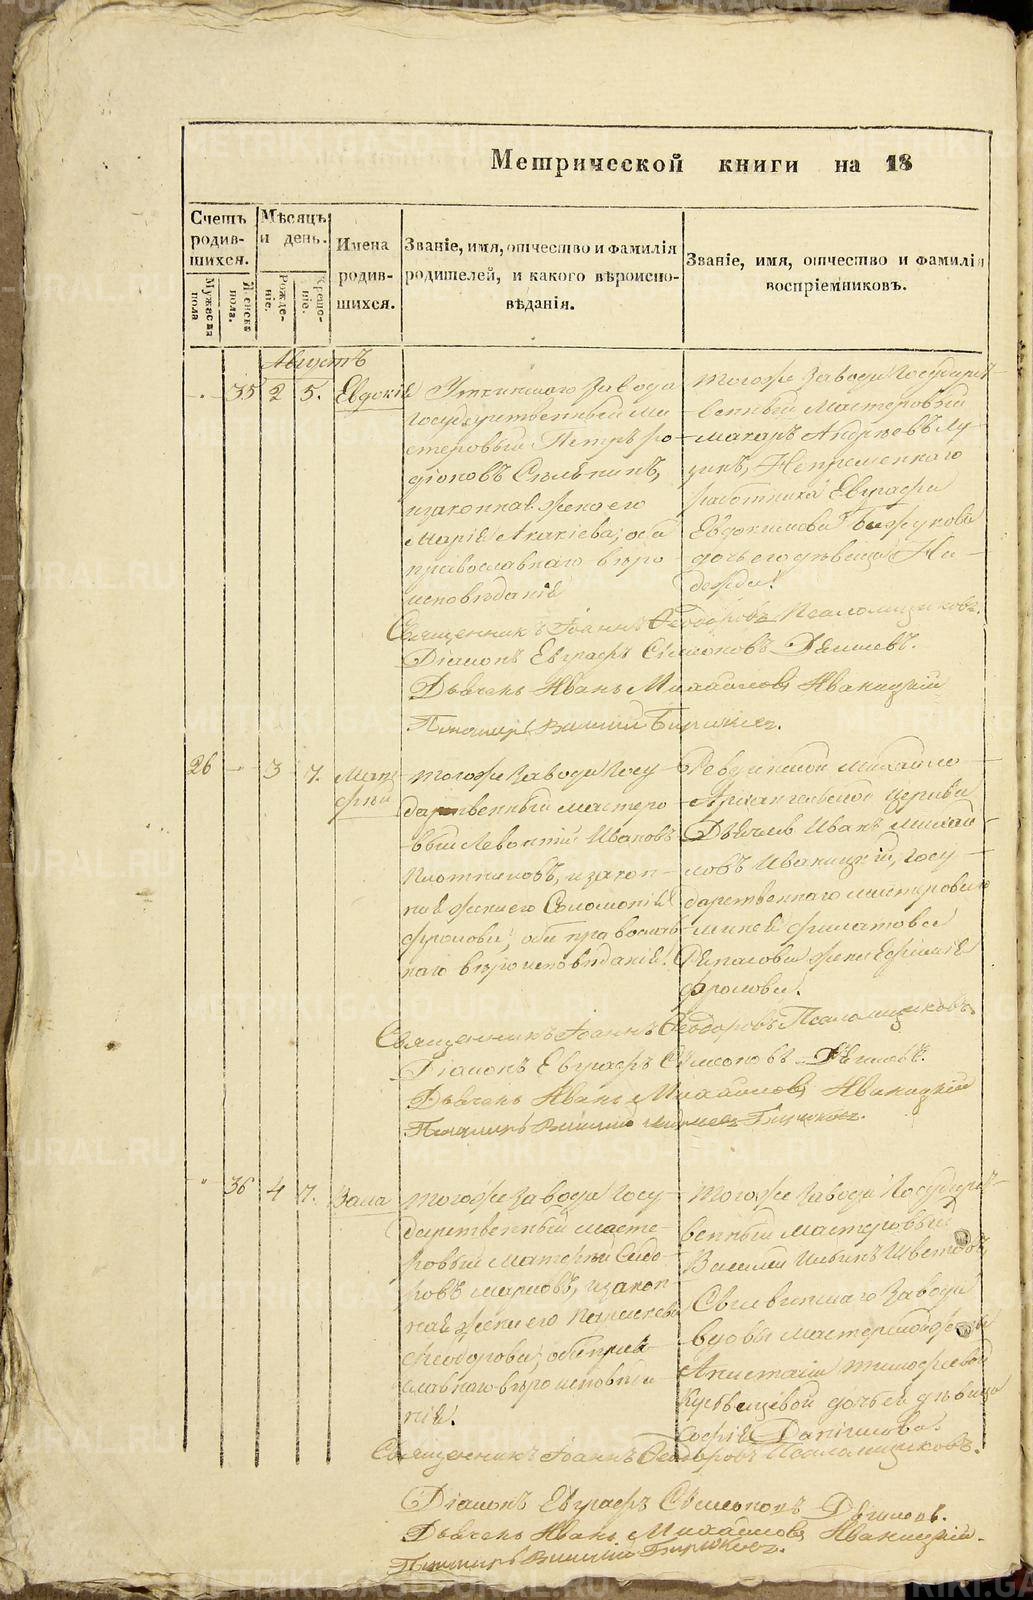 Метрической книги на 18
Счетъ родив-шихся.
Мѣсяцъ и день.
Имена родив-шихся.
Званіе, имя, отчество и фамилія родителей, и какого вѣроиспо-вѣданія.
Званіе, имя, отчество и фамилія воспріемниковъ.
Мужеска пола
Женска пола.
Рожде-ніе.
Креще-ніе.
Августъ
35 2 5. Евдокія
Уткинскаго завода
государственный ма
стеровый Петръ Ро
діоновъ
и законная жена его
Марія Акакіева; оба
православнаго вѣро
исповѣданія
Тогоже завода Государст
венный Мастеровый
Макаръ Андреевъ Лу
зинъ, Непременнаго
работника Евграфа
Евдокимова
дочь его девица На
дежда.
Священникъ Іоаннъ Феодоровъ Псаломщиковъ.
Діаконъ Евграфъ Симеоновъ
Дьячекъ Иванъ Михайловъ Иваницкій
Пономарь Василій Бирюковъ.
26 3 7. Мат
фей
тогоже завода Госу
дарственный мастеро
вый Леонтій Ивановъ
Плотниковъ, и закон
ная жена его Соломонія
Фролова; оба православ
наго вѣроисповѣданія.
Ревдинской Михайло
Архангельской церкви
Дьячекъ Иванъ Михай
ловъ Иваницкій, Госу
дарственнаго мастероваго
Филатова
жена Ефимія
Фролова.
Священникъ Іоаннъ Феодоровъ Псаломщиковъ.
Діаконъ Евграфъ Симеоновъ
Дьячекъ Иванъ Михайловъ Иваницкій
Пономарь Василій Бирюковъ.
36 4 7.
тогоже завода Госу
дарственный масте
ровый Матфей Сидо
ровъ Марковъ, и закон
ная жена его Параскева
Феодорова; оба право
славнаго вѣроисповѣда
нія.
Тогоже завода Государст
венный мастеровый
Василій Ильинъ Цветовъ,
завода
вдовы мастерской жены
Анастасіи Тимофеевой
дочь ея девица
Софія Данилова.
Священникъ Іоаннъ Феодоровъ Псаломщиковъ.
Діаконъ Евграфъ Симеоновъ
Дьячекъ Иванъ Михайловъ Иваницкій.
Пономарь Василій Бирюковъ.
METRIKI.GASO-URAL.RU